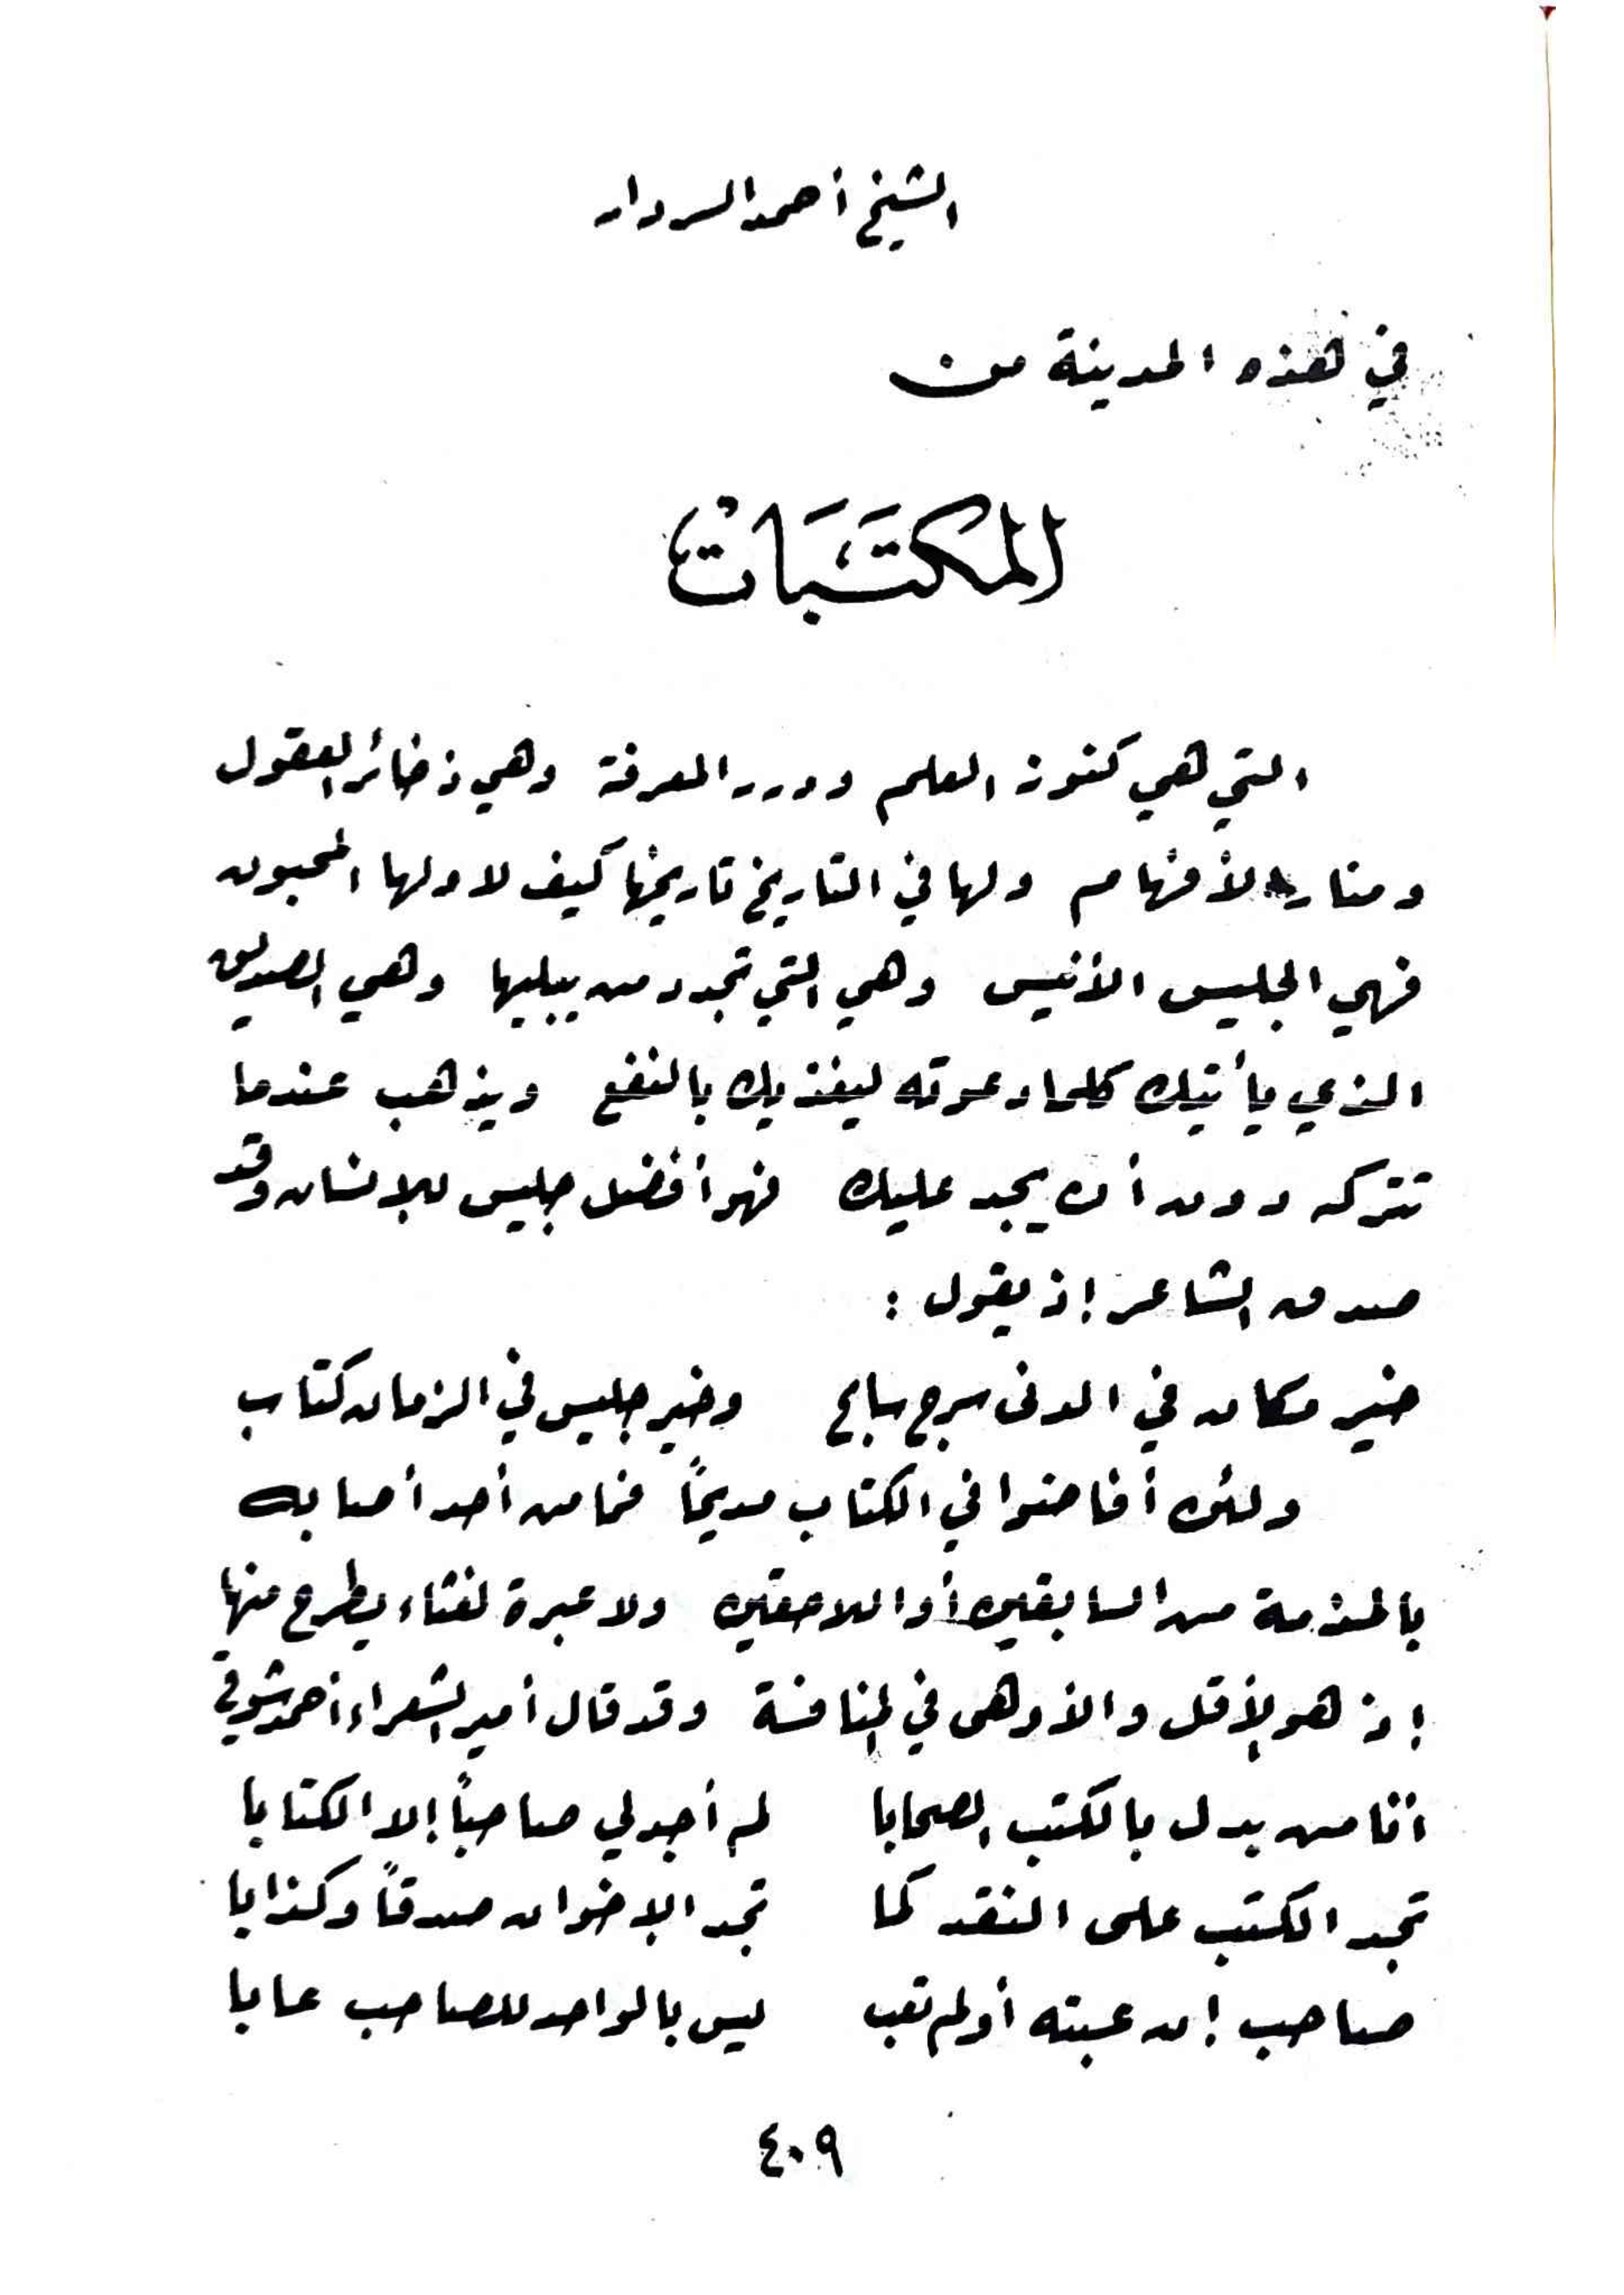 الشيخ أحمد السردار
في هذه المدينة من
المَكتَبَاتْ
التي هي كنوز العلم ودرر المعرفة وهي ذخائر العقول
ومنار الأفهام ولها في التاريخ تاريخها كيف لا ولها المحبون
فهي الجليس الأنيس وهي التي تجدد من يبليها وهي الصديق
الذي يأتيك كلما دعوته ليغذيك بالنفع ويذهب عندما
تتركه دون أن يجد عليك فهو أفضل جليس للإنسان وقد
صدق الشاعر إذ يقول :
خير مكان في الدنى سرج سابح وخير جليس في الزمان كتاب
ولئن أفاضوا في الكتاب مديحاً فما من أحد أصابه
بالمذمة من السابقين أو اللاحقين ولا عبرة لغثاء يطرح منها
إذ هو الأقل والأوهى في المنافسة وقد قال أمير الشعراء أحمد شوقي
أنا من بدل بالكتب الصحابا لم أجد لي صاحباً إلا الكتابا
تجد الكتب على النقد كما تجد الإخوان صدقاً وكذابا
صاحب إن عبته أو لم تعب ليس بالواحد للصاحب عابا
٤٠٩